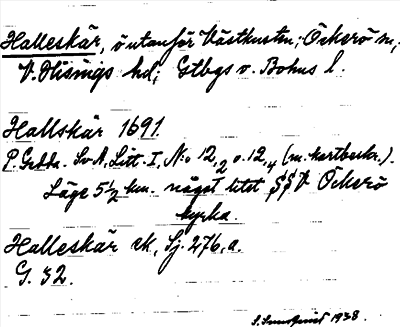 Halleskär, ö utanför Västkusten; Öckerö sn,
V. Hisings hd; Gtbgs o. Bohus l.
Hallskär 1691.
P. Gedda. Sv A, Litt. I, No 12,2 o. 12,4 (m. kartbeskr.).
Läge 5 1/2 km. något litet SSV Öckerö
kyrka.
Halleskär ek, Sj. 276, a.
G. 32.
1938.